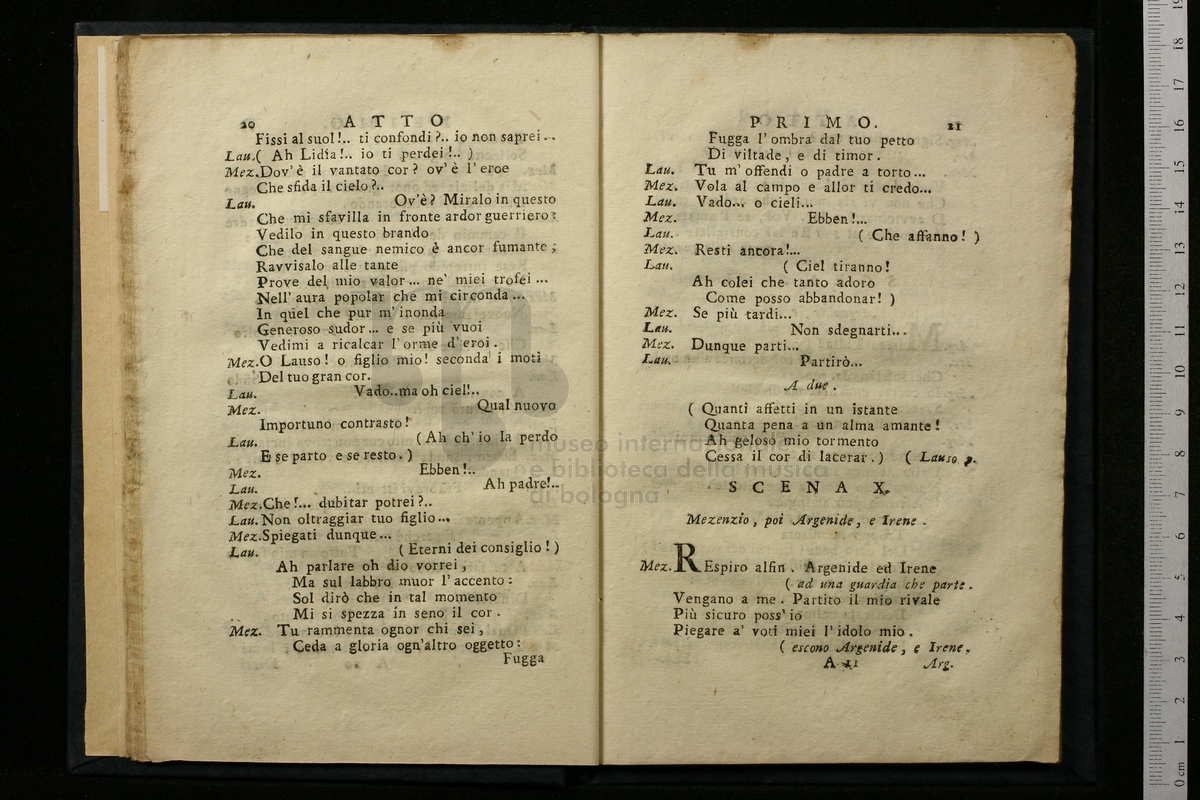 20 ATTO
Fissi al suol!.. ti confondi?.. io non saprei..
Lau.( Ah Lidia!.. io ti perdei!.. )
Mez.Dov' è il vantato cor? ov' è l' eroe
Che sfida il cielo?..
Lau. Ov'è? Miralo in questo
Che mi sfavilla in fronte ardor guerriero:
Vedilo in questo brando
Che del sangue nemico è ancor fumante;
Ravvisalo alle tante
Prove del mio valor... ne' miei trofei...
Nell' aura popolar che mi circonda...
In quel che pur m' inonda
Generoso sudor... e se più vuoi
Vedimi a ricalcar l' orme d' eroi.
Mez.O Lauso! o figlio mio! seconda i moti
Del tuo gran cor.
Lau. Vado..ma oh ciel!..
Mez. Qual nuovo
Importuno contrasto!
Lau. (Ah ch' io la perdo
E se parto e se resto.)
Mez. Ebben!..
Lau. Ah padre!..
Mez.Che!... dubitar potrei?..
Lau.Non oltraggiar tuo figlio...
Mez.Spiegati dunque...
Lau. (Eterni dei consiglio!)
Ah parlare oh dio vorrei,
Ma sul labbro muor l' accento:
Sol dirò che in tal momento
Mi si spezza in seno il cor.
Mez. Tu rammenta ognor chi sei,
Ceda a gloria ogn'altro oggetto:
Fugga
PRIMO. 21
Fugga l' ombra dal tuo petto
Di viltade, e di timor.
Lau. Tu m' offendi o padre a torto...
Mez. Vola al campo e allor ti credo...
Lau. Vado... o cieli...
Mez. Ebben!...
Lau. ( Che affanno! )
Mez. Resti ancora!...
Lau. ( Ciel tiranno!
Ah colei che tanto adoro
Come posso abbandonar! )
Mez. Se più tardi...
Lau. Non sdegnarti...
Mez. Dunque parti...
Lau. Partirò...
A due.
( Quanti affetti in un istante
Quanta pena a un alma amante!
Ah geloso mio tormento
Cessa il cor di lacerar.) ( Lauso p.
SCENA X.
Mezenzio, poi Argenide, e Irene.
Mez.REspiro alfin. Argenide ed Irene
( ad una guardia che parte.
Vengano a me. Partito il mio rivale
Più sicuro poss' io
Piegare a' voti miei l' idolo mio.
( escono Argenide, e Irene.
A 11 Arg.
museo interna
e biblioteca della musica
di bologna